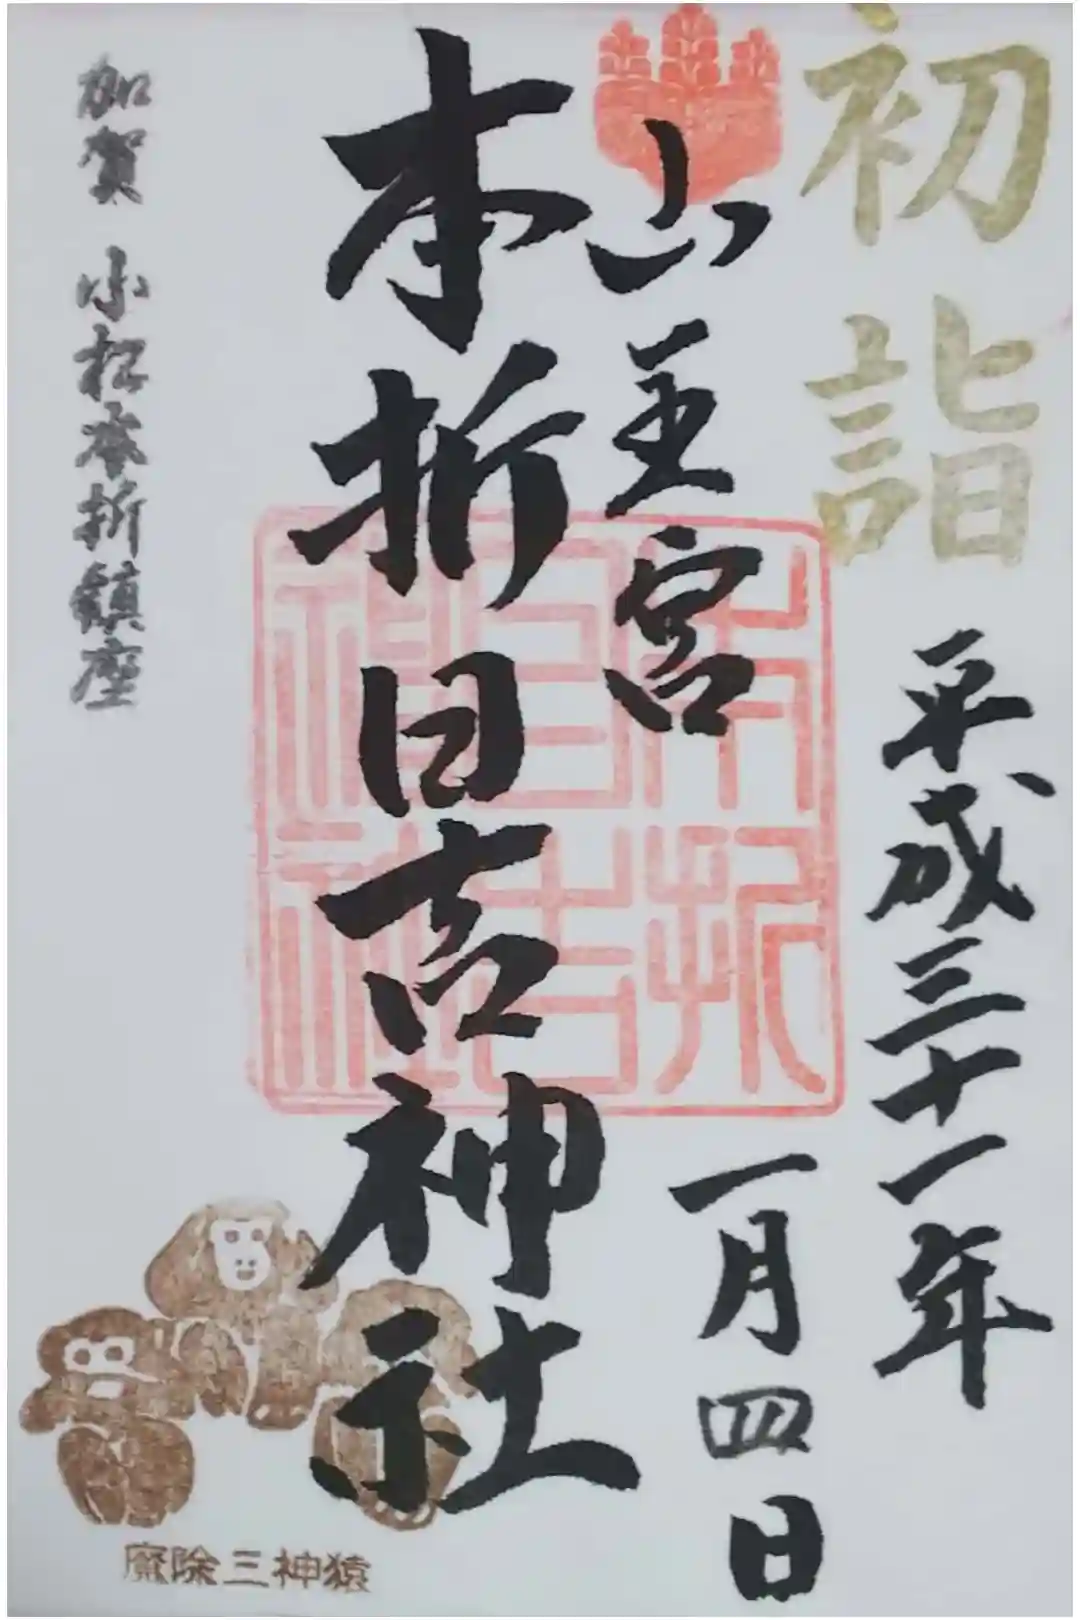 初詣
平成三十一年
一月四日
山王宮
本折日吉神社
本折
日吉
神社
加賀 小松本折鎮座
魔除三神猿